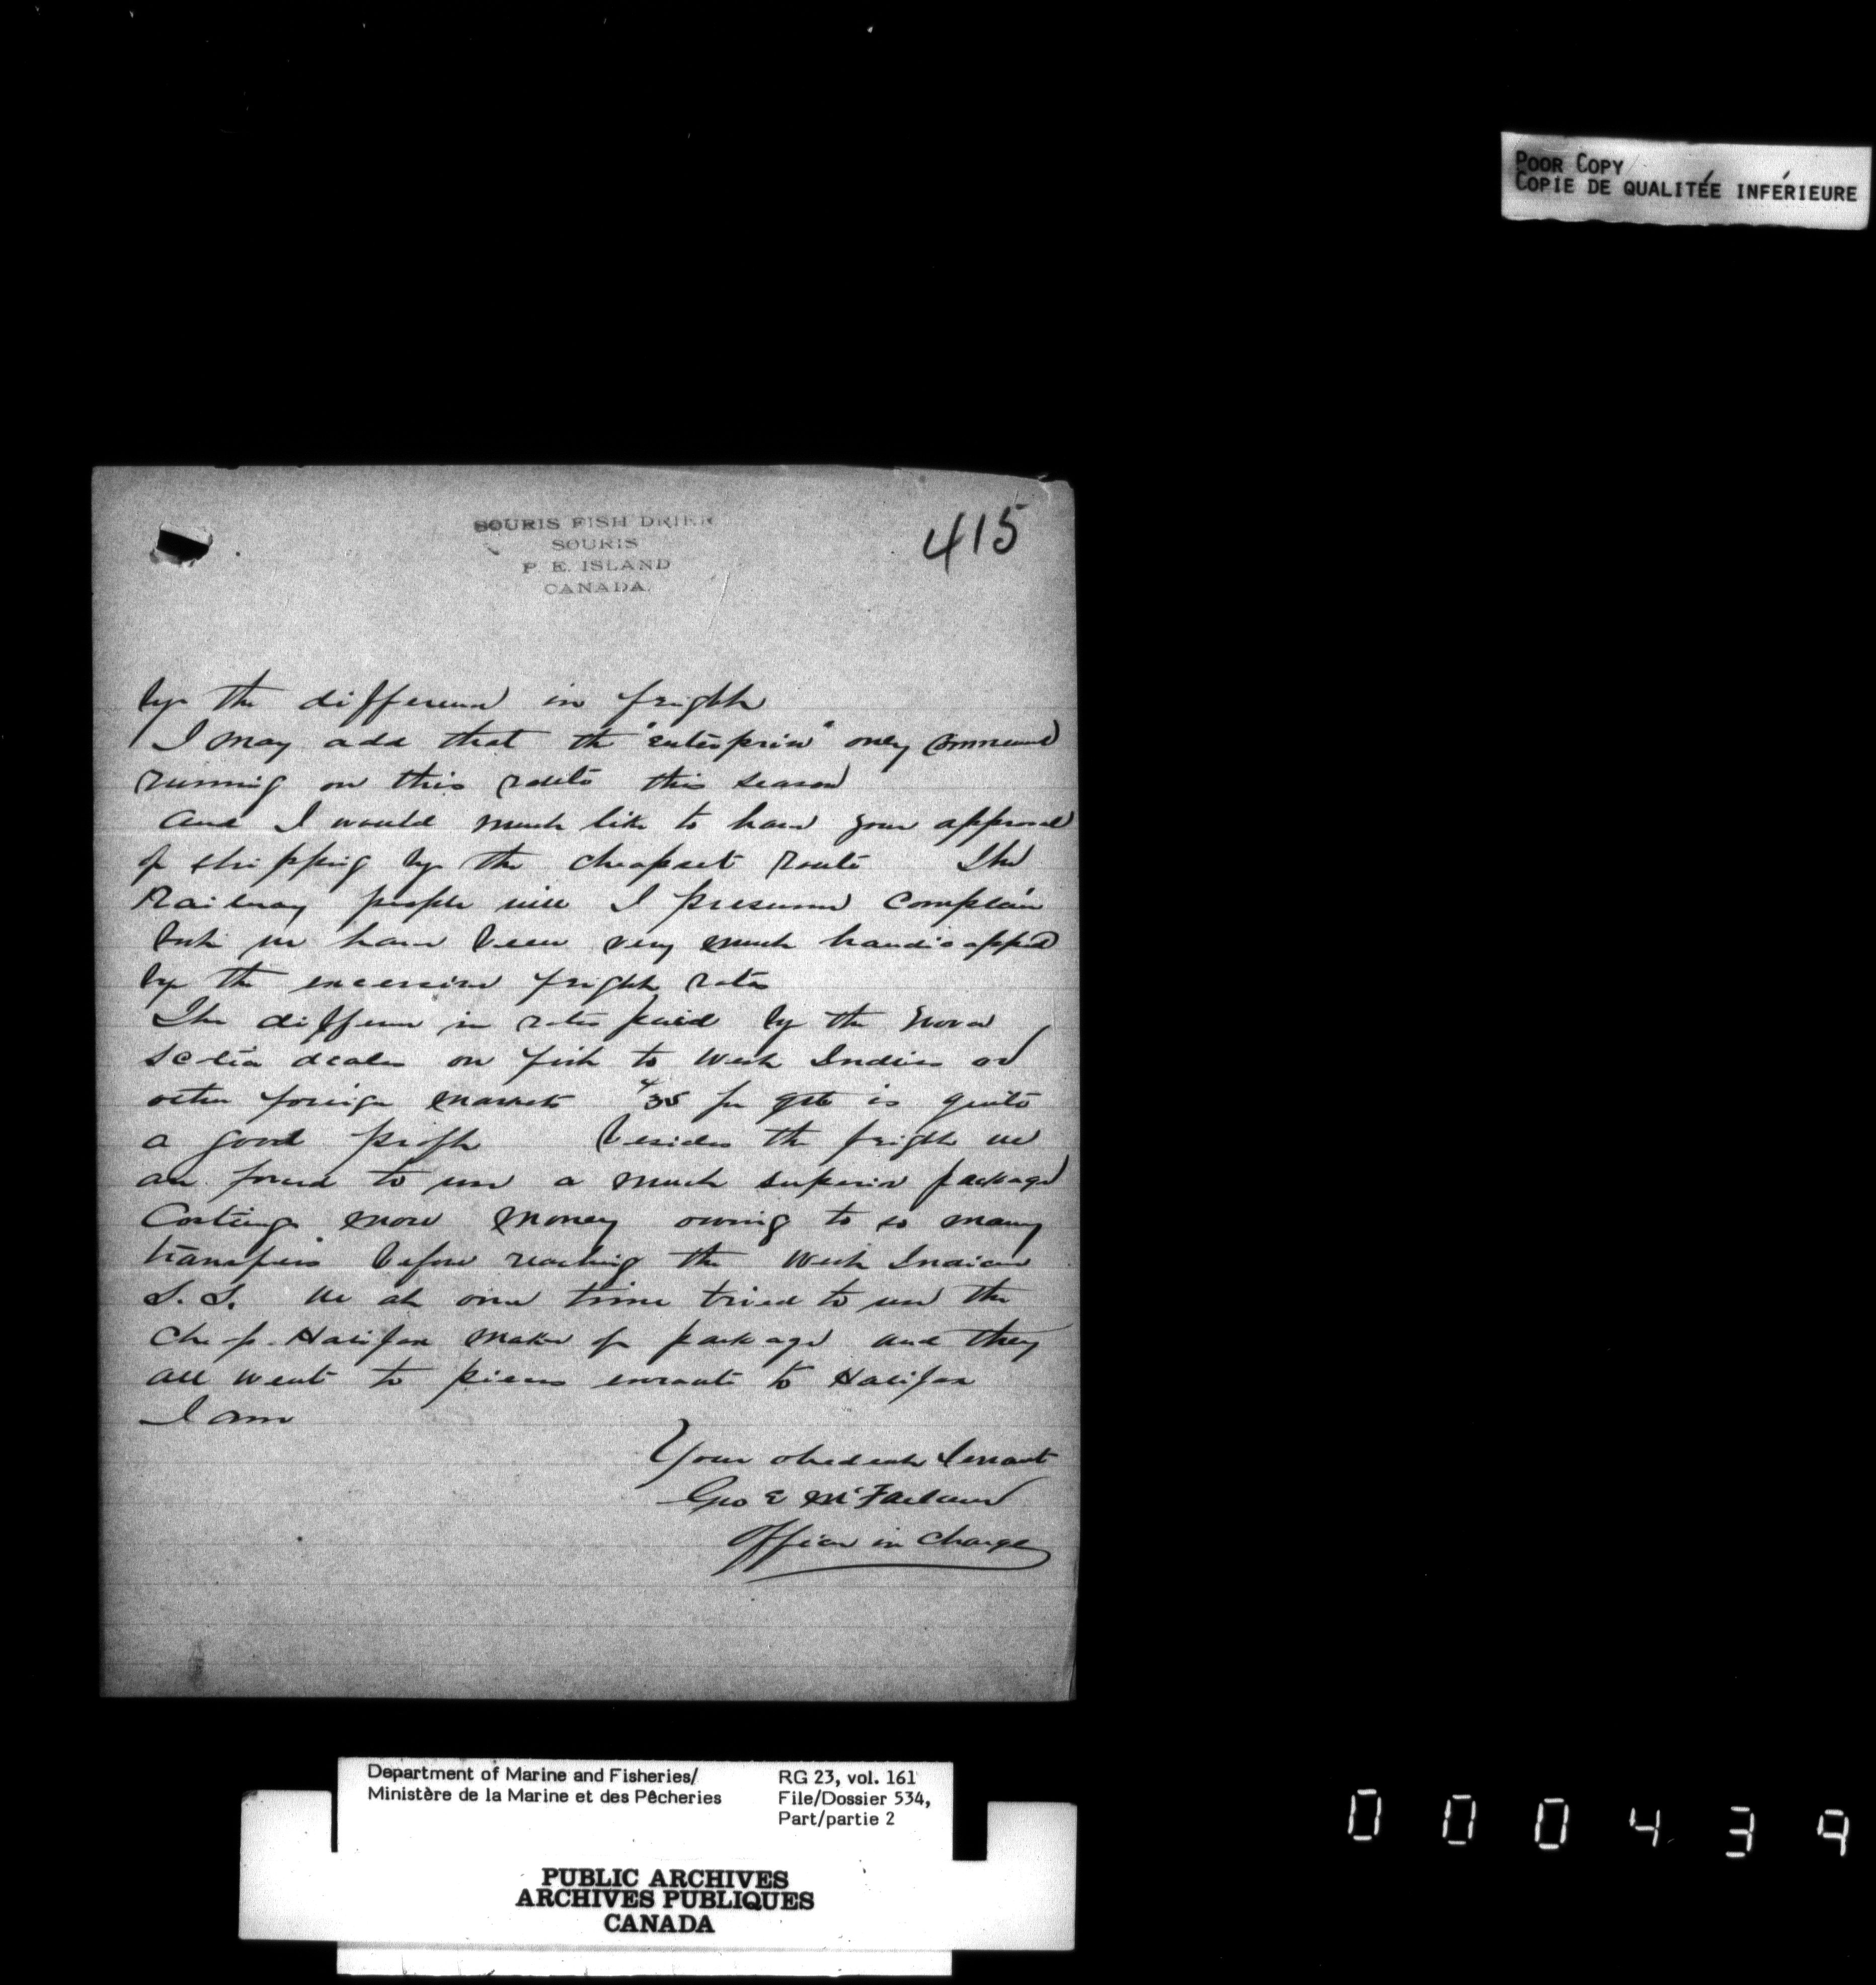 POOR COPY
COPIE DE QUALITÉE INFÉRIEURE
SOURIS FISH DRIER
SOURIS
P. E. ISLAND
CANADA.
415
by the difference in freight
I may add that the "Enterprise" only commenced
running on this route this season
and I would much like to have your approval
of shipping by the cheapest route The
Railway people will I presume complain
but we have been very much handicapped
by the excessive freight rates
The difference in rates paid by the Nova
Scotia dealers on fish to West Indies or
other foreign markets 35 per qtl is quite
a good profit besides the freight we
are forced to use a much superior package
Costing more money owing to so many
transfers before reaching the West Indian
S.S. We at one time tried to use the
cheap Halifax make of package and they
all went to pieces enroute to Halifax
I am
Your obedient Servant
Geo E McFarland
Officer in Charge
Department of Marine and Fisheries/
Ministère de la Marine et des Pêcheries
RG 23, vol. 161
File/Dossier 534,
Part/partie 2
PUBLIC ARCHIVES
ARCHIVES PUBLIQUES
CANADA
000439